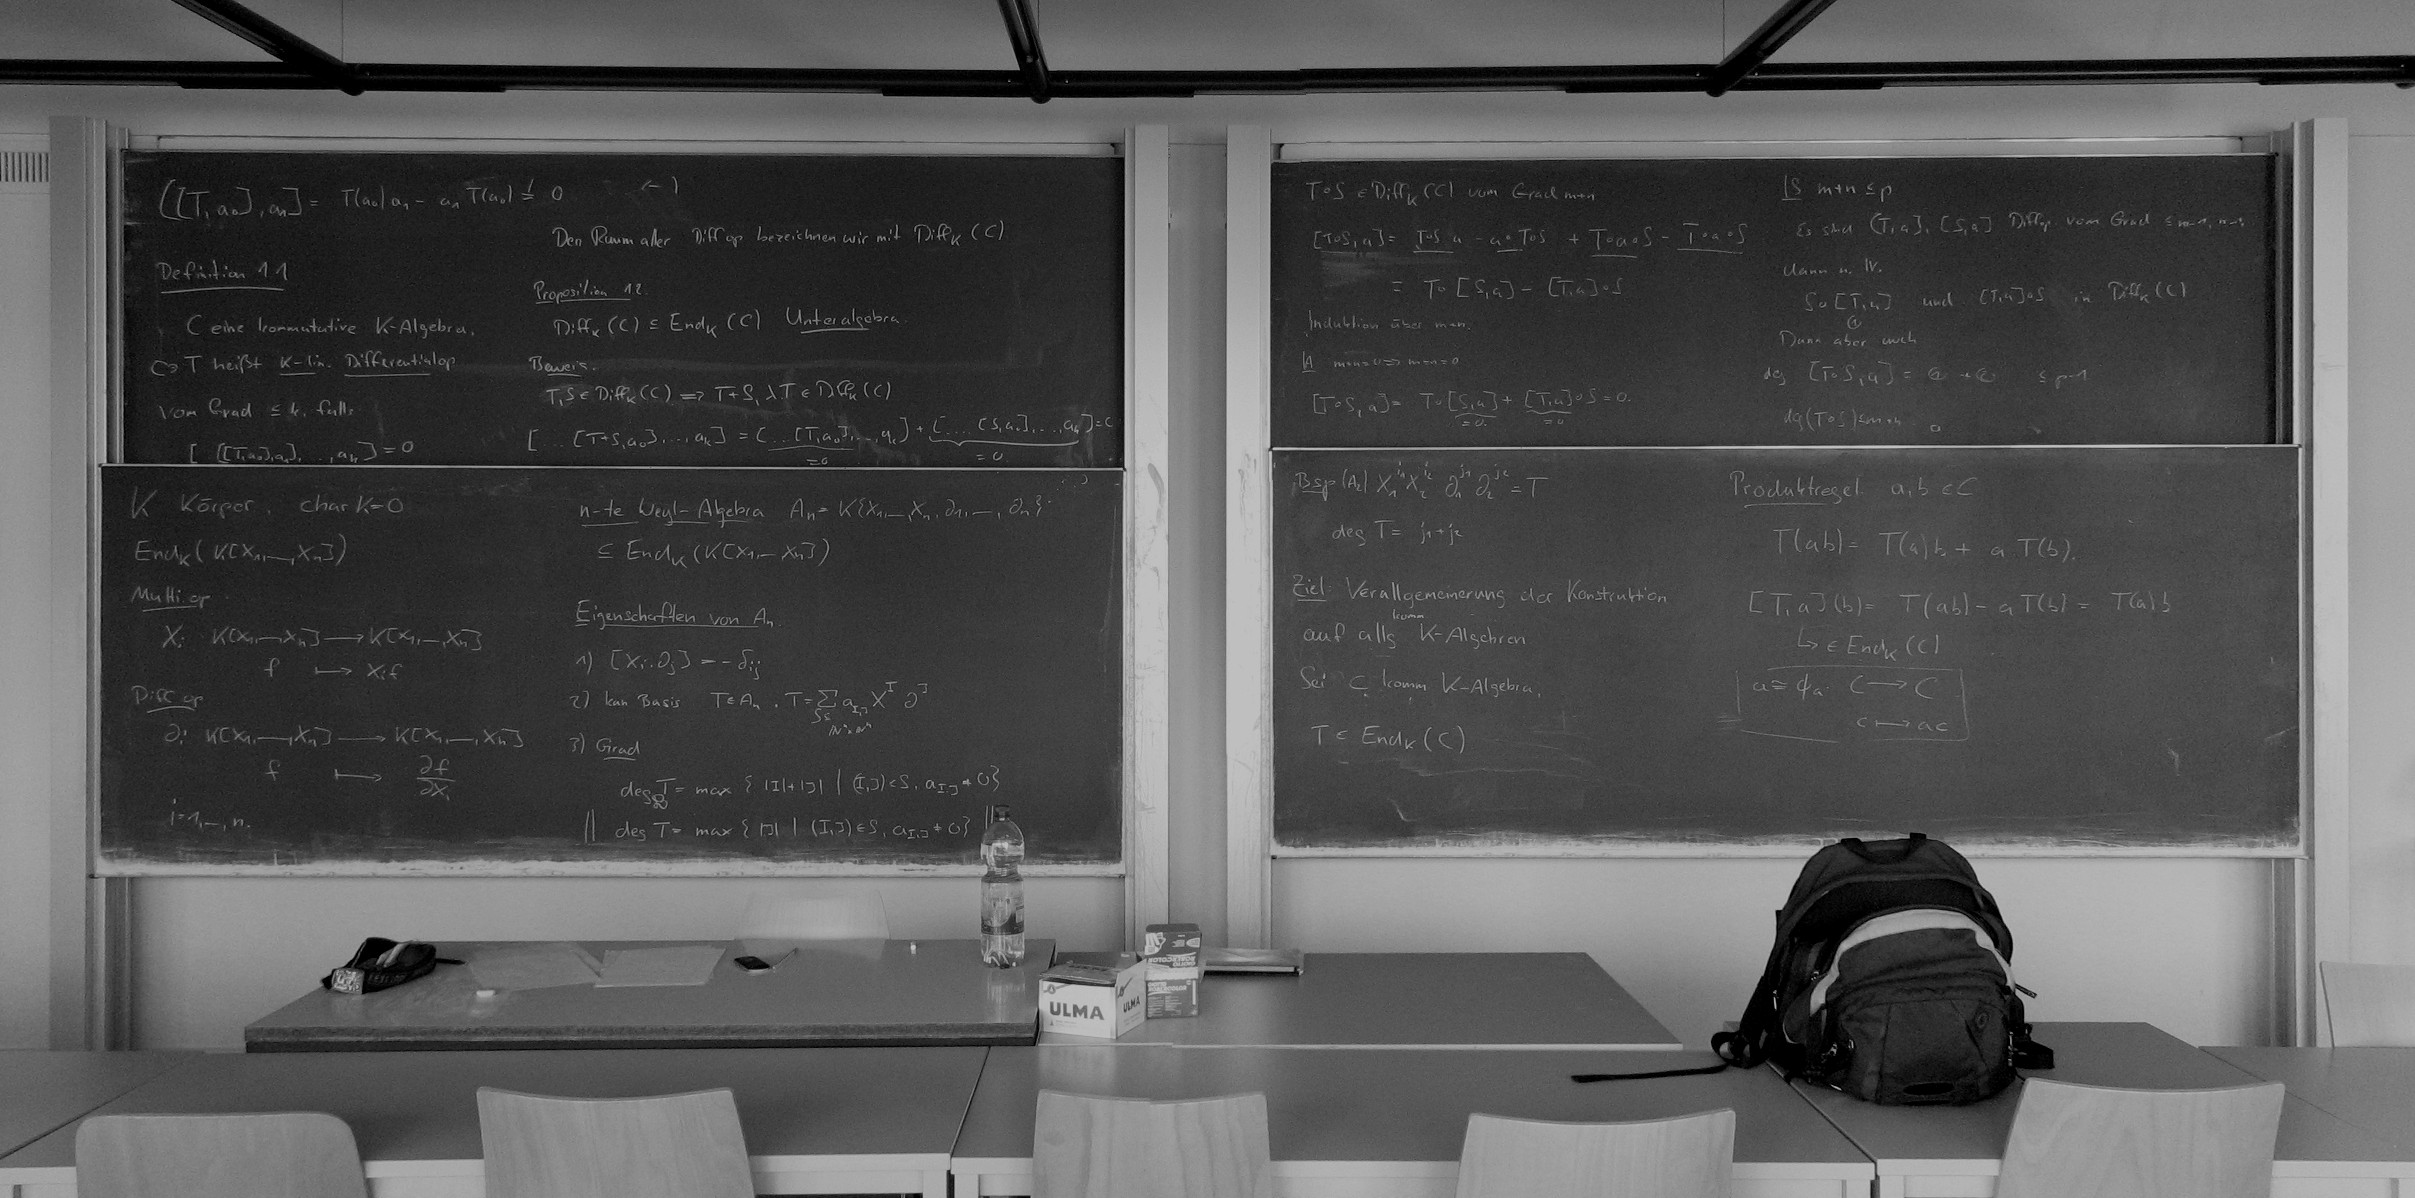 ([[T,a₀],a₁] = T(a₀)a₁ - a₁T(a₀) = 0
Definition 1.1
C eine kommutative K-Algebra.
T heißt K-lin. Differentialop
vom Grad ≤ k, falls
[ [[T,a₀],a₁], ..., aₖ] = 0
Den Raum aller Diffop bezeichnen wir mit Diff_K(C)
Proposition 1.2.
Diff_K(C) ⊆ End_K(C) Unteralgebra.
Beweis.
T,S ∈ Diff_K(C) ⟹ T+S, λT ∈ Diff_K(C)
[ ... [T+S,a₀], ..., aₖ] = [ ... [T,a₀], ..., aₖ] + [ ... [S,a₀], ..., aₖ] = 0
=0 = 0
K Körper, char K=0
End_K(K[X₁,—,Xₙ])
Multi.op
Xᵢ K[X₁,—,Xₙ] ⟶ K[X₁,—,Xₙ]
f ⟼ Xᵢf
Diff op
∂ᵢ K[X₁,—,Xₙ] ⟶ K[X₁,—,Xₙ]
f ⟼ ∂f/∂Xᵢ
i=1,—,n.
n-te Weyl-Algebra Aₙ = K{X₁,—,Xₙ,∂₁,—,∂ₙ}
⊆ End_K(K[X₁,—Xₙ])
Eigenschaften von Aₙ.
1) [Xᵢ,∂ⱼ] = -δᵢⱼ
2) kan Basis T∈Aₙ, T=∑ a_{I,J} X^I ∂^J
3) Grad
deg T = max { |I|+|J| | (I,J)∈S, a_{I,J} ≠ 0}
|| deg T = max { |J| | (I,J)∈S, a_{I,J} ≠ 0} ||
T∘S ∈ Diff_K(C) vom Grad m+n
[T∘S,a] = T∘S∘a - a∘T∘S + T∘a∘S - T∘a∘S
= T∘[S,a] - [T,a]∘S
Induktion über m+n.
IA m+n=0 ⟹ m=n=0
[T∘S,a] = T∘[S,a] + [T,a]∘S = 0.
=0. =0
IS m+n ≤ p
Es sind [T,a], [S,a] Diffop. vom Grad ≤ m-1, n-1
dann n. IV.
S∘[T,a] und [T,a]∘S in Diff_K(C)
Dann aber auch
deg [T∘S,a] = ≤ p-1
deg(T∘S) ≤ m+n
Bsp (A₂) X₁^{i₁} X₂^{i₂} ∂₁^{j₁} ∂₂^{j₂} = T
deg T = j₁+j₂
Ziel: Verallgemeinerung der Konstruktion
auf alle komm K-Algebren
Sei C komm K-Algebra,
T ∈ End_K(C)
Produktregel a,b ∈ C
T(ab) = T(a)b + a T(b).
[T,a](b) = T(ab) - aT(b) = T(a)b
↳ ∈ End_K(C)
a ≅ ϕₐ. C ⟶ C
c ⟼ ac
ULMA
ULMA
ROBERCOLOR